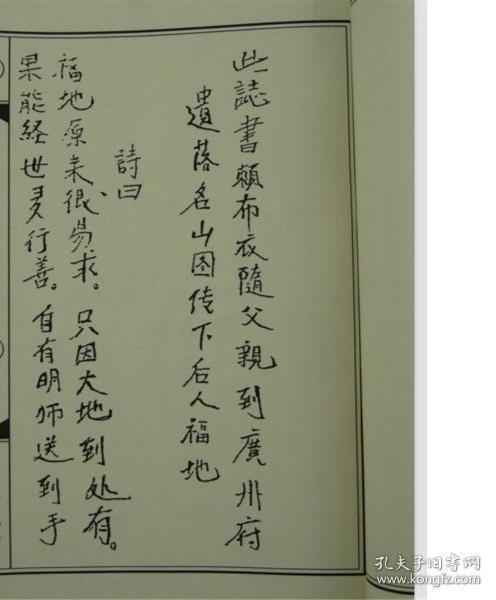 此誌書賴布衣隨父親到廣州府
遺落名山图传下后人福地
詩曰
福地原来很易求。只因大地到处有。
果能经世多行善。自有明师送到手
孔夫子旧书网
kongfz.com